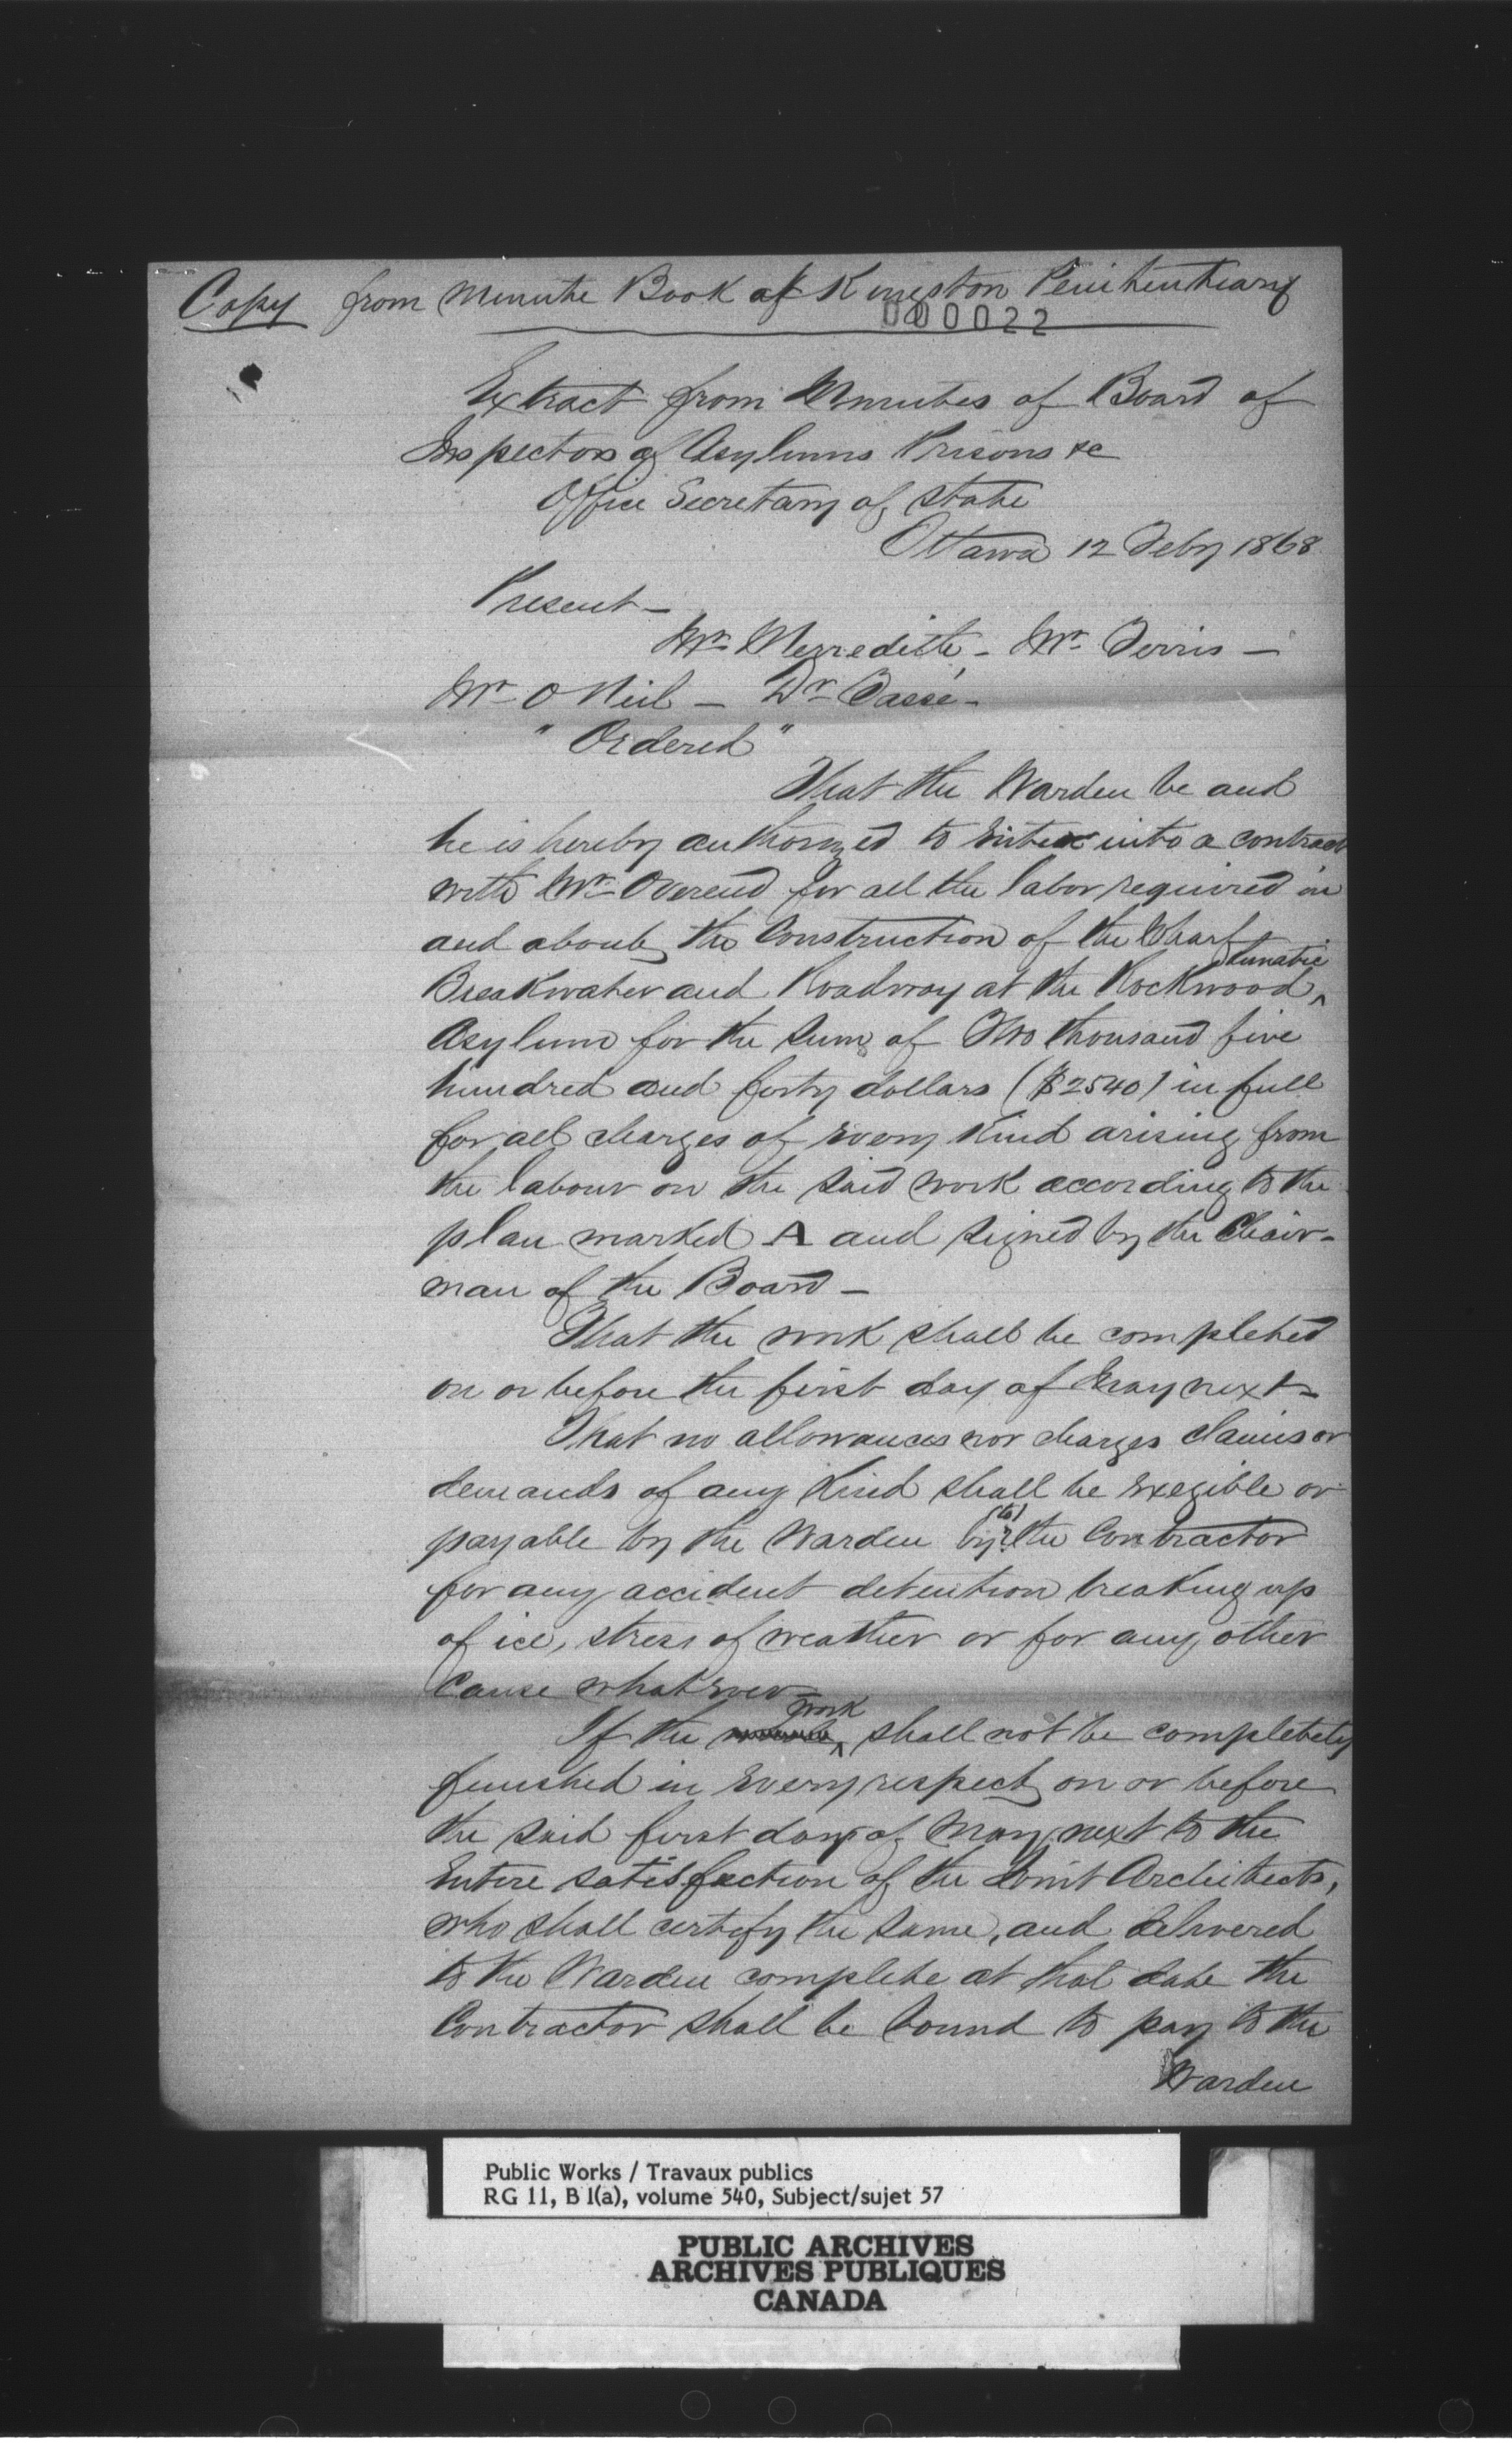 Copy from Minute Book of Kingston Penitentiary
000022
Extract from Minutes of Board of
Inspectors of Asylums Prisons &c
Office Secretary of State
Ottawa 12 Feby 1868
Present —
Mr Meredith - Mr Ferris —
Mr O Neil — Dr Tassé -
"Ordered"
That the Warden be and
he is hereby authorized to Enter into a contract
with Mr Overend for all the labor required in
and about the Construction of the Wharf
lunatic
Breakwater and Roadway at the Rockwood ^
Asylum for the sum of Two thousand five
hundred and forty dollars ($2540) in full
for all charges of every kind arising from
the labour on the said work according to the
plan marked A and signed by the Chair-
man of the Board —
That the work shall be completed
on or before the first day of May next —
That no allowances nor charges claims or
demands of any kind shall be exegible or
(to)
payable by the Warden by? the Contractor
for any accident detention breaking up
of ice, stress of weather or for any other
Cause whatever —
work
If the ^ shall not be completely
finished in every respect on or before
the said first day of May next to the
Entire satisfaction of the Joint Architects,
who shall certify the same, and delivered
to the Warden complete at that date the
Contractor shall be bound to pay to the
Warden
Public Works / Travaux publics
RG 11, B 1(a), volume 540, Subject/sujet 57
PUBLIC ARCHIVES
ARCHIVES PUBLIQUES
CANADA